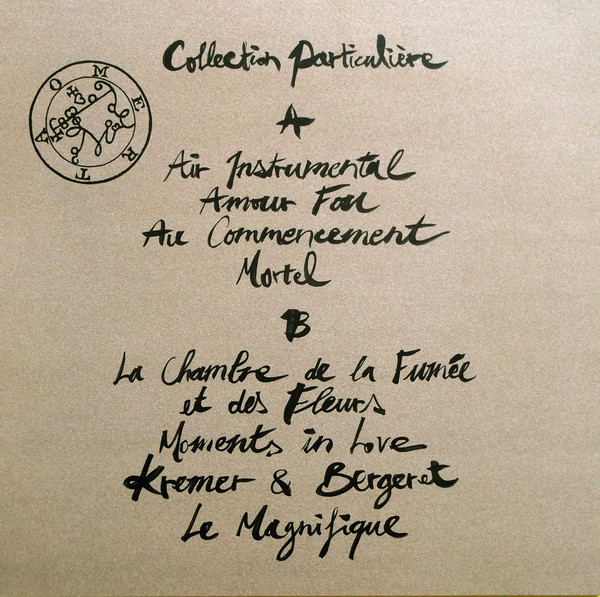 Collection Particulière
OMERTA
A
Air Instrumental
Amour Fou
Au Commencement
Mortel
B
La Chambre de la Fumée
et des Fleurs
Moments in Love
Kremer & Bergeret
Le Magnifique